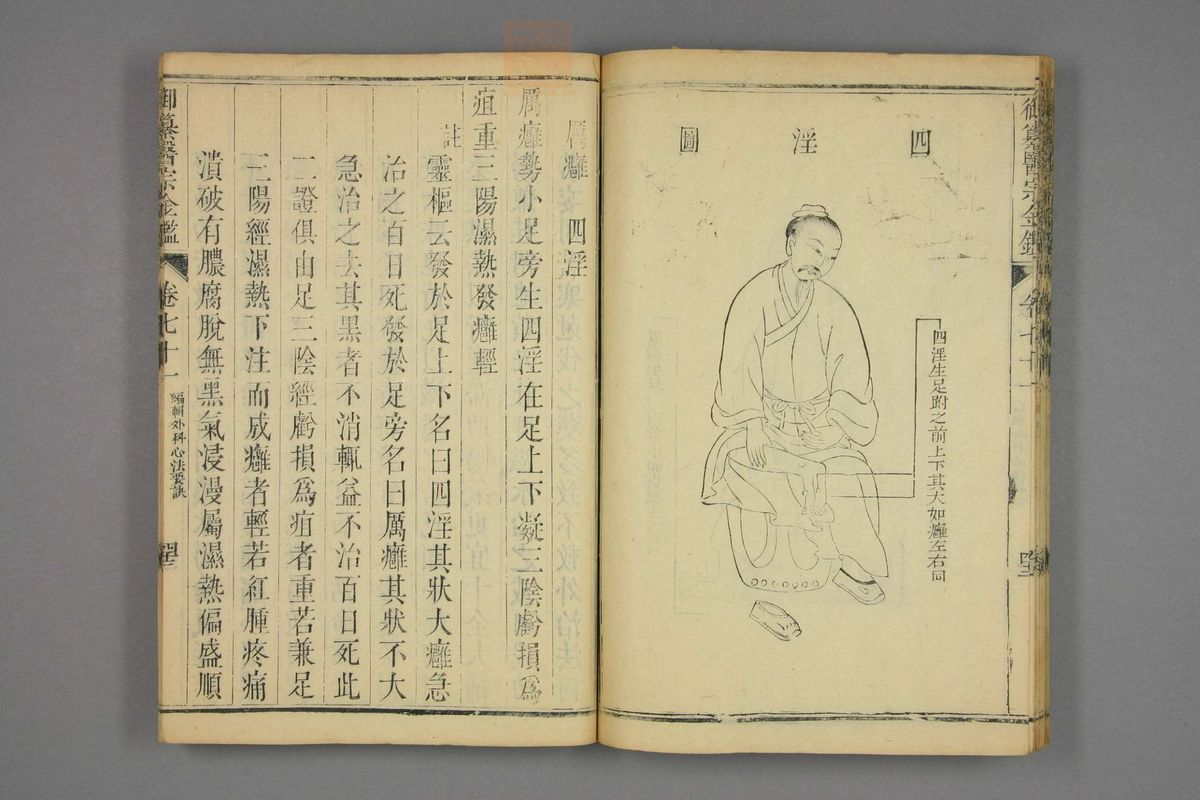 四淫圖
四淫生足跗之前上下其大如癰左右同
御纂醫宗金鑑
卷七十一
厲癰 四淫
厲癰勢小足旁生四淫在足上下凝三陰虧損為
疽重三陽濕熱發癰輕
註
靈樞云發於足上下名曰四淫其狀大癰急
治之百日死發於足旁名曰厲癰其狀不大
急治之去其黑者不消輒益不治百日死此
二證俱由足三陰經虧損為疽者重若兼足
三陽經濕熱下注而成癰者輕若紅腫疼痛
潰破有膿腐脫無黑氣浸漫屬濕熱偏盛順
御纂醫宗金鑑
卷七十一
編輯外科心法要訣